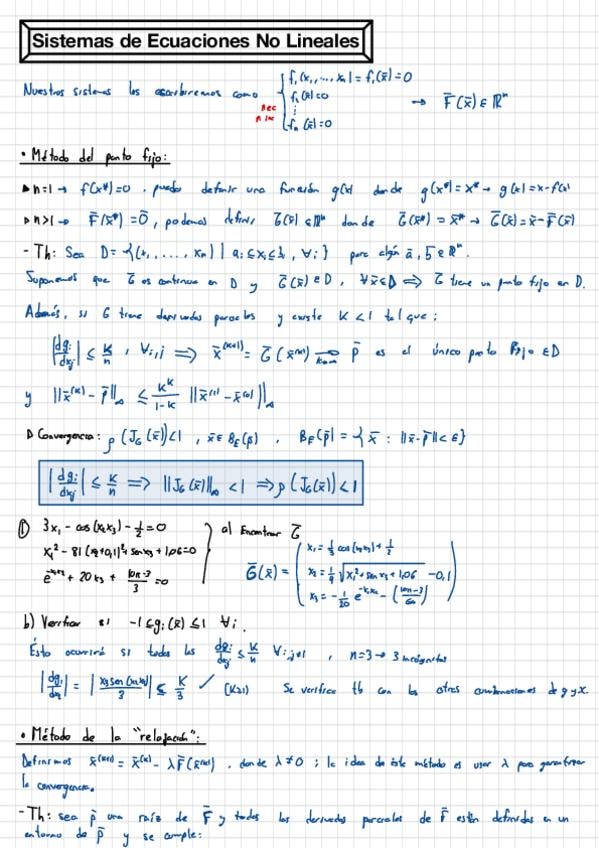 Sistemas de Ecuaciones No Lineales
Nuestros sistemas los escribiremos como { f₁(x₁, ..., xₙ) = f₁(x̄) = 0
f₂(x̄) = 0
⋮
fₙ(x̄) = 0
→ F̄(x̄) ∈ ℝⁿ
n ec
n inc
• Método del punto fijo:
▷ n=1 → f(x*)=0, puedo definir una función g(x) donde g(x*) = x* → g(x) = x - f(x)
▷ n>1 → F̄(x*) = Ō, podemos definir Ḡ(x̄) ∈ ℝⁿ donde Ḡ(x̄*) = x̄* → Ḡ(x̄) = x̄ - F̄(x̄)
- Th: Sea D = {(x₁, ..., xₙ) | aᵢ ≤ xᵢ ≤ bᵢ, ∀ᵢ} para algún ā, b̄ ∈ ℝⁿ.
Suponemos que Ḡ es continua en D y Ḡ(x̄) ∈ D, ∀x̄∈D ⟹ Ḡ tiene un punto fijo en D.
Además, si G tiene derivadas parciales y existe K < 1 tal que:
|dgᵢ/dxⱼ| ≤ K/n, ∀i,j ⟹ x̄⁽ᵏ⁺¹⁾ = Ḡ(x̄⁽ᵏ⁾) → p̄ es el único punto fijo ∈ D
y ||x̄⁽ᵏ⁾ - p̄||∞ ≤ Kᵏ/(1-K) ||x̄⁽¹⁾ - x̄⁽⁰⁾||∞
▷ Convergencia: ρ(J_G(x̄)) < 1, x̄ ∈ B_ε(p̄), B_ε(p̄) = {x̄ : ||x̄-p̄|| < ε}
|dgᵢ/dxⱼ| ≤ K/n ⟹ ||J_G(x̄)||∞ < 1 ⟹ ρ(J_G(x̄)) < 1
① 3x₁ - cos(x₂x₃) - 1/2 = 0
x₁² - 81(x₂+0,1)² + sen x₃ + 1,06 = 0
e^(-x₁x₂) + 20x₃ + (10π-3)/3 = 0
a) Encontrar Ḡ
Ḡ(x̄) = ( x₁ = 1/3 cos(x₂x₃) + 1/2
x₂ = 1/9 √(x₁² + sen x₃ + 1,06) - 0,1
x₃ = -1/20 e^(-x₁x₂) - ((10π-3)/60) )
b) Verificar si -1 ≤ gᵢ(x̄) ≤ 1 ∀i.
Ésto ocurrirá si todas las dgᵢ/dxⱼ ≤ K/n ∀i,j≠1, n=3 → 3 incógnitas
= |x₃sen(x₂x₃)/3| ≤ K/3 ✓ Se verifica tb con las otras combinaciones de g y x.
• Método de la "relajación":
Definimos x̄⁽ᵏ⁺¹⁾ = x̄⁽ᵏ⁾ - λF̄(x̄⁽ᵏ⁾), donde λ ≠ 0; la idea de éste método es usar λ para garantizar
la convergencia.
- Th: sea p̄ una raíz de F̄ y todas las derivadas parciales de F̄ están definidas en un
entorno de p̄ y se cumple: